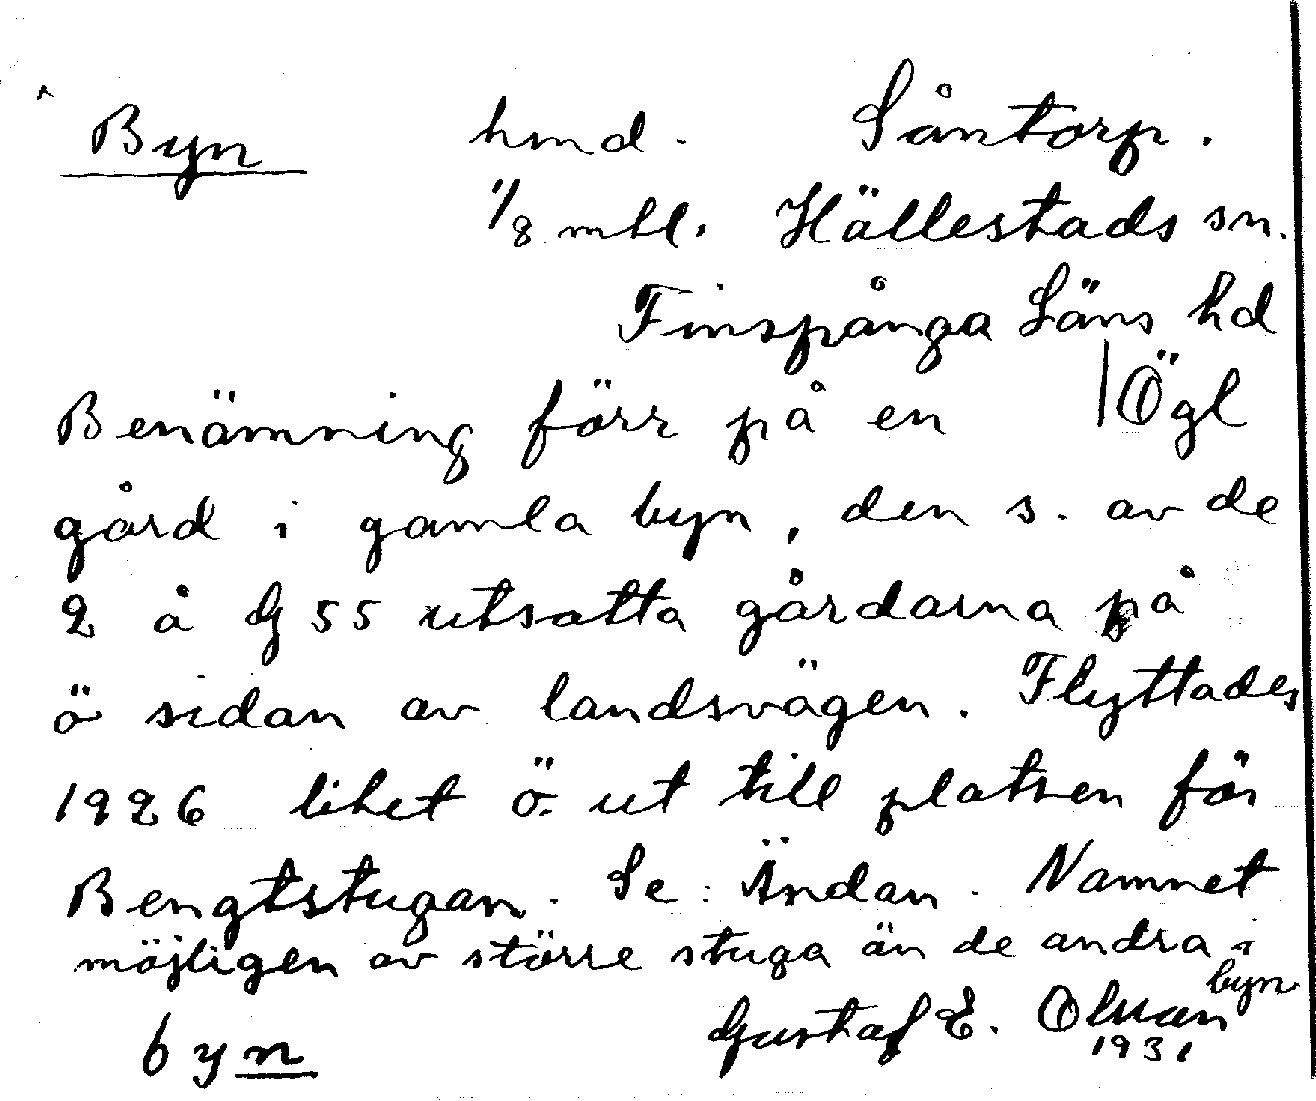 Byn hmd. Såntorp.
1/8 mtl. Hällestads sn.
Finspånga Läns hd
Benämning förr på en | Ögl
gård i gamla byn, den s. av de
2 å G 55 utsatta gårdarna på
ö sidan av landsvägen. Flyttades
1926 litet ö. ut till platsen för
Bengtstugan. Se: Ändan. Namnet
möjligen av större stuga än de andra i
byn
byn Gustaf E. Olsson
1931